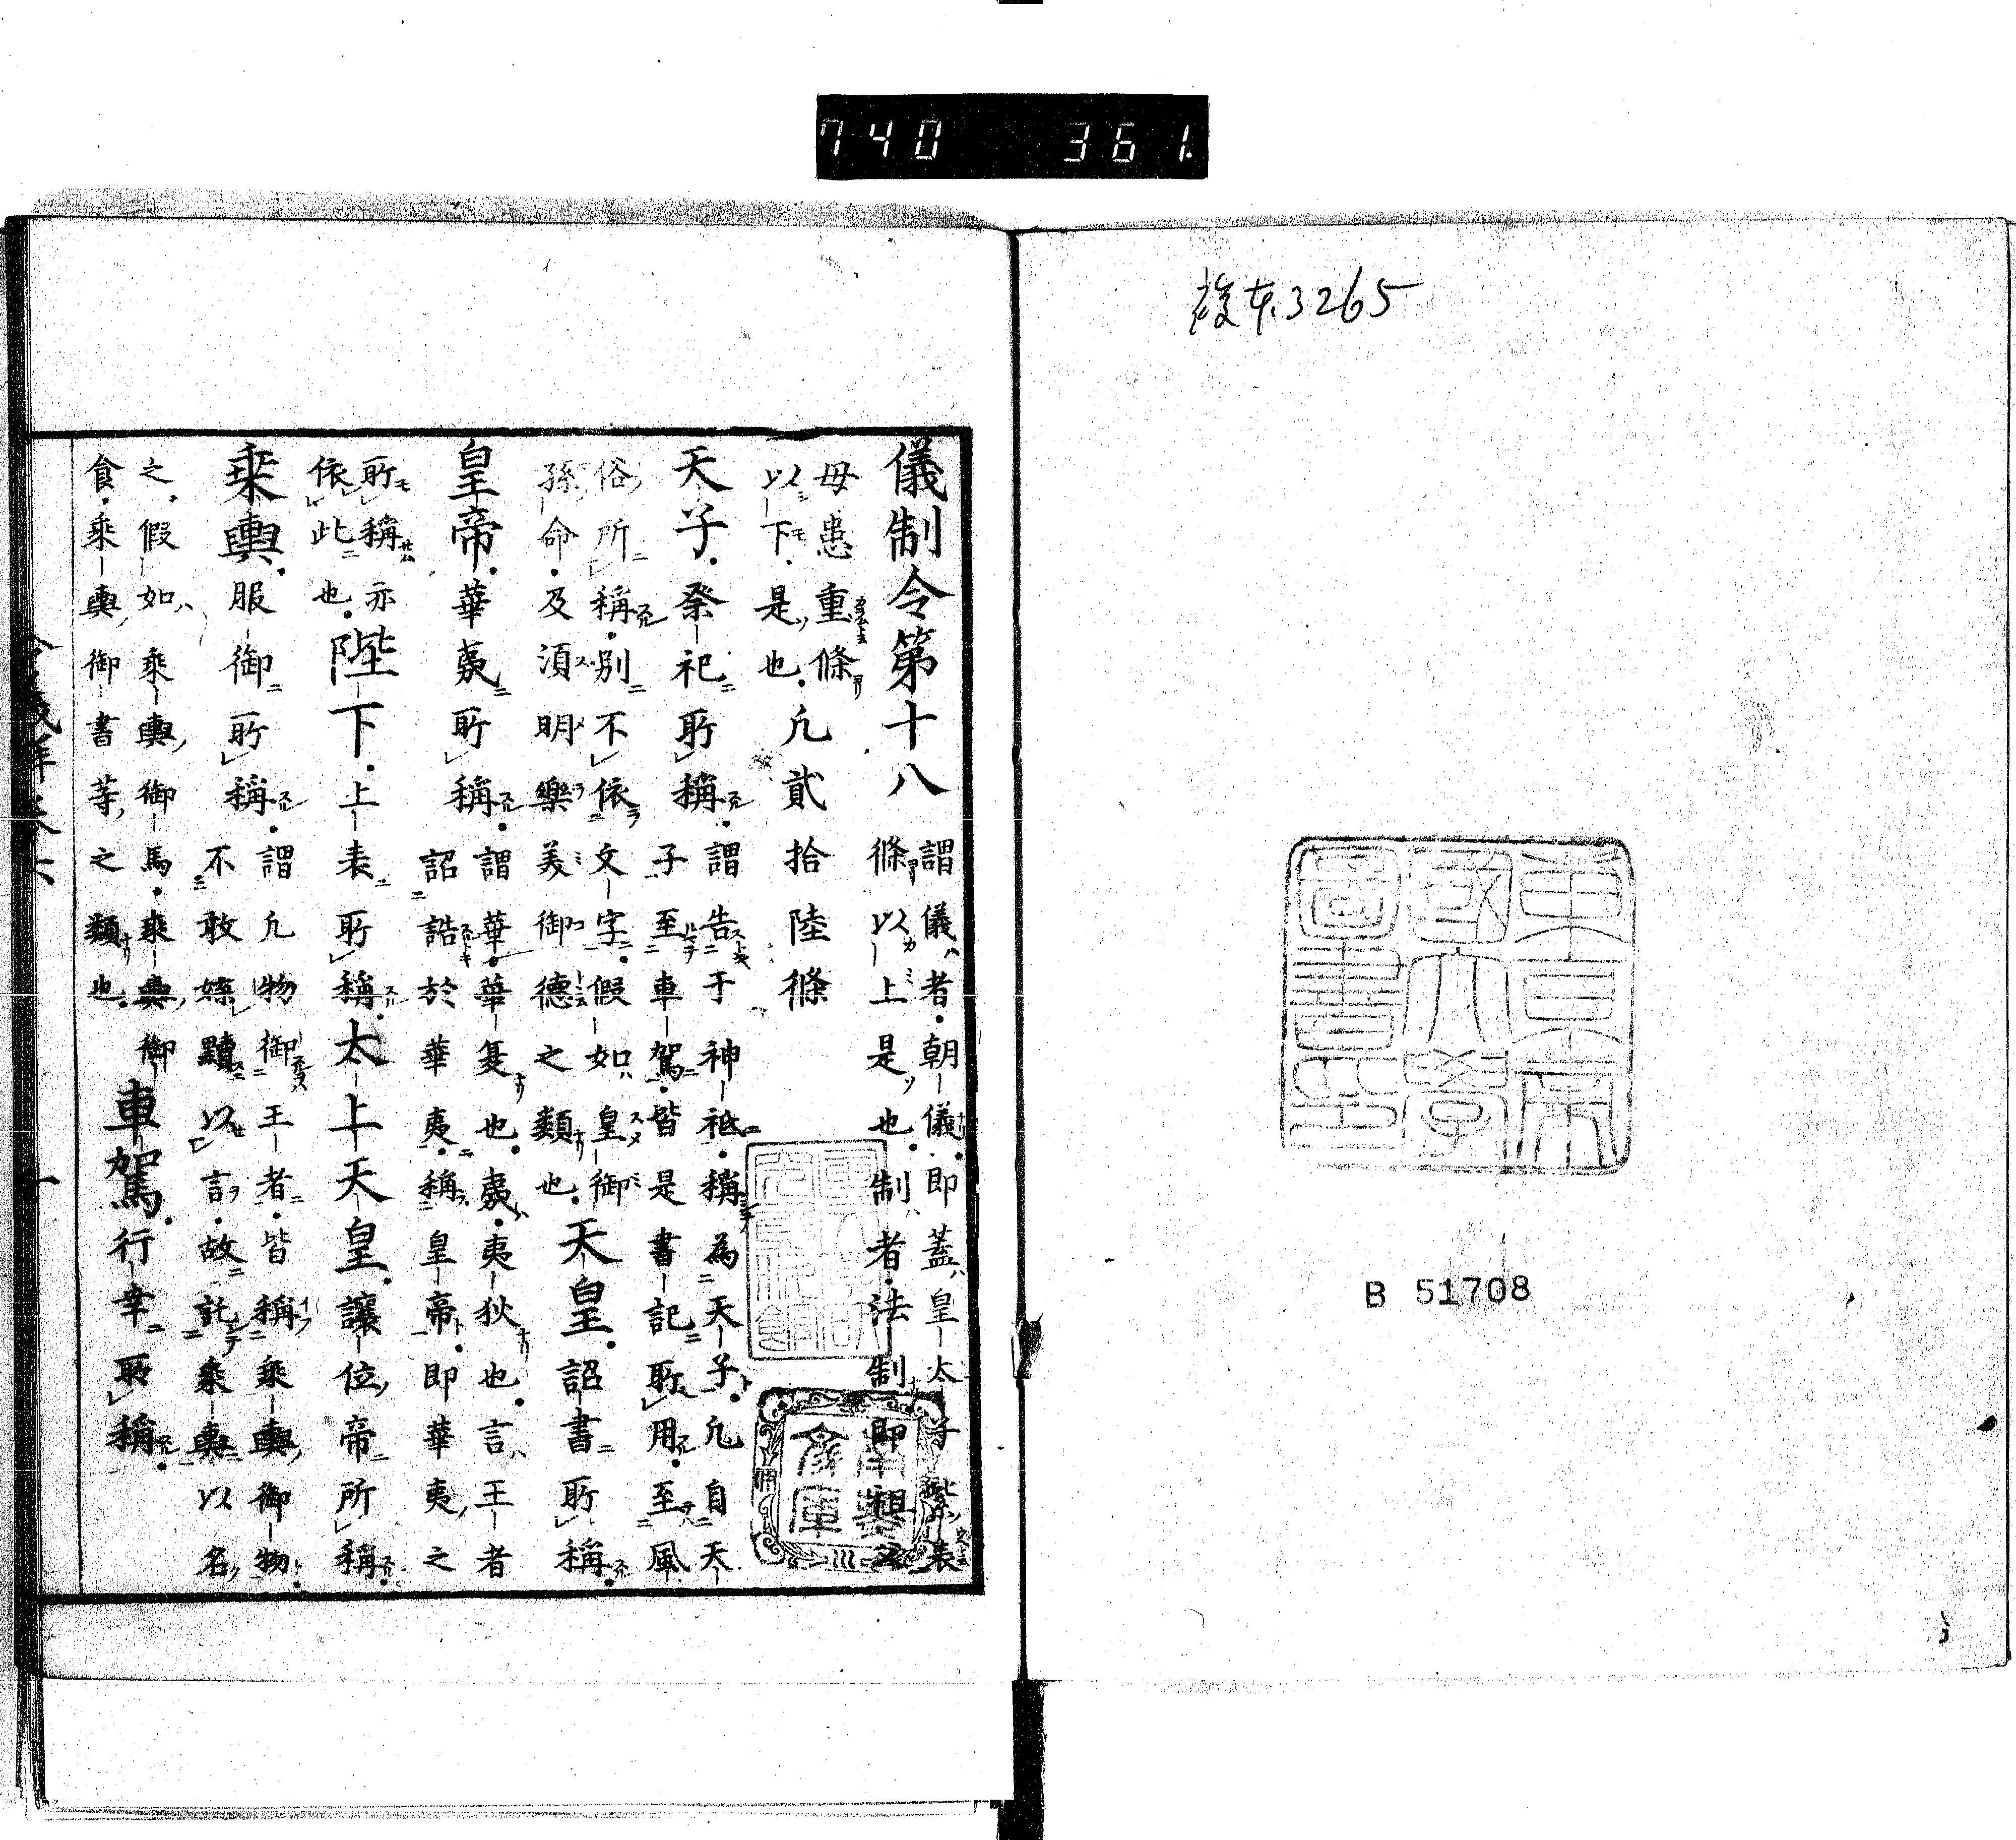 740 361
複本3265
東京帝
國大學
圖書印
B 51708
儀制令第十八 謂儀者朝儀即蓋皇太子紫表
條以上是也制者法制即祖父
母患重條
以下是也 凢貳拾陸條
天子祭祀所稱 謂告于神祇稱為天子凢自天
子至車駕皆是書記所用至風
俗所稱別不依文字假如皇御
孫命及須明樂美御德之類也 天皇詔書所稱
皇帝華夷所稱 謂華華夏也夷夷狄也言王者
詔誥於華夷稱皇帝即華夷之
所稱亦
依此也 陛下上表所稱太上天皇讓位帝所稱
乘輿服御所稱 謂凢物御王者皆稱乘輿御物
不敢媟黷以言故託乘輿以名
之假如乘輿御馬乘輿御
食乘輿御書等之類也 車駕行幸所稱